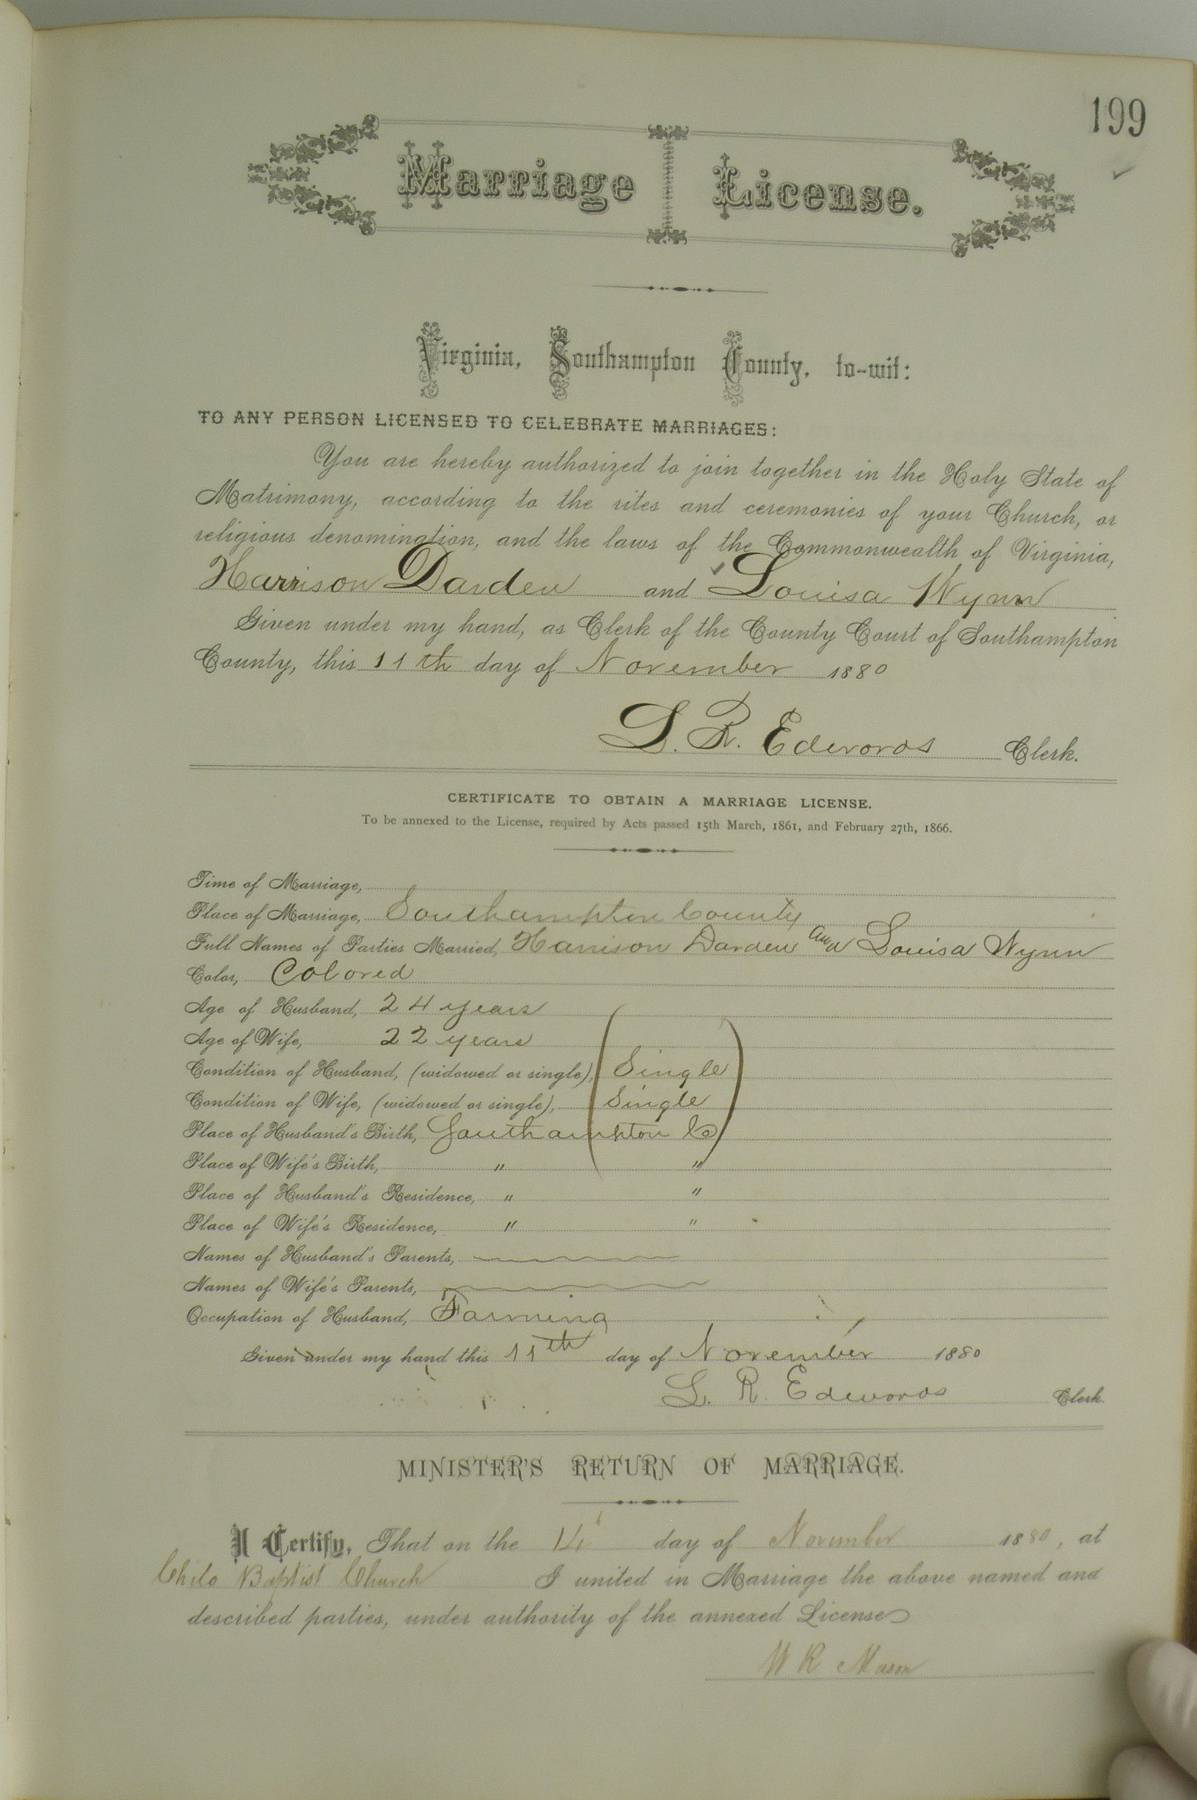 199
Marriage License.
Virginia, Southampton County, to-wit:
TO ANY PERSON LICENSED TO CELEBRATE MARRIAGES:
You are hereby authorized to join together in the Holy State of
Matrimony, according to the rites and ceremonies of your Church, or
religious denomination, and the laws of the Commonwealth of Virginia,
Harrison Darden and Louisa Wynn
Given under my hand, as Clerk of the County Court of Southampton
County, this 11th day of November 1880
L. R. Edwards Clerk.
CERTIFICATE TO OBTAIN A MARRIAGE LICENSE.
To be annexed to the License, required by Acts passed 15th March, 1861, and February 27th, 1866.
Time of Marriage,
Place of Marriage, Southampton County
Full Names of Parties Married, Harrison Darden and Louisa Wynn
Color, Colored
Age of Husband, 24 years
Age of Wife, 22 years
Condition of Husband, (widowed or single), Single
Condition of Wife, (widowed or single), Single
Place of Husband's Birth, Southampton Co
Place of Wife's Birth, " "
Place of Husband's Residence, " "
Place of Wife's Residence, " "
Names of Husband's Parents,
Names of Wife's Parents,
Occupation of Husband, Farming
Given under my hand this 11th day of November 1880
L. R. Edwards Clerk.
MINISTER'S RETURN OF MARRIAGE.
I Certify, That on the 14 day of November 1880, at
Shilo Baptist Church I united in Marriage the above named and
described parties, under authority of the annexed License
W R Mason